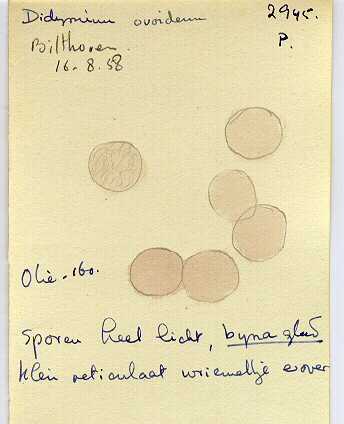 Didymium ovoideum
2945.
Bilthoven.
P.
16-8.58
Olie-160.
Sporen heel licht, byna glad
klein reticulaat wriemeltje erover